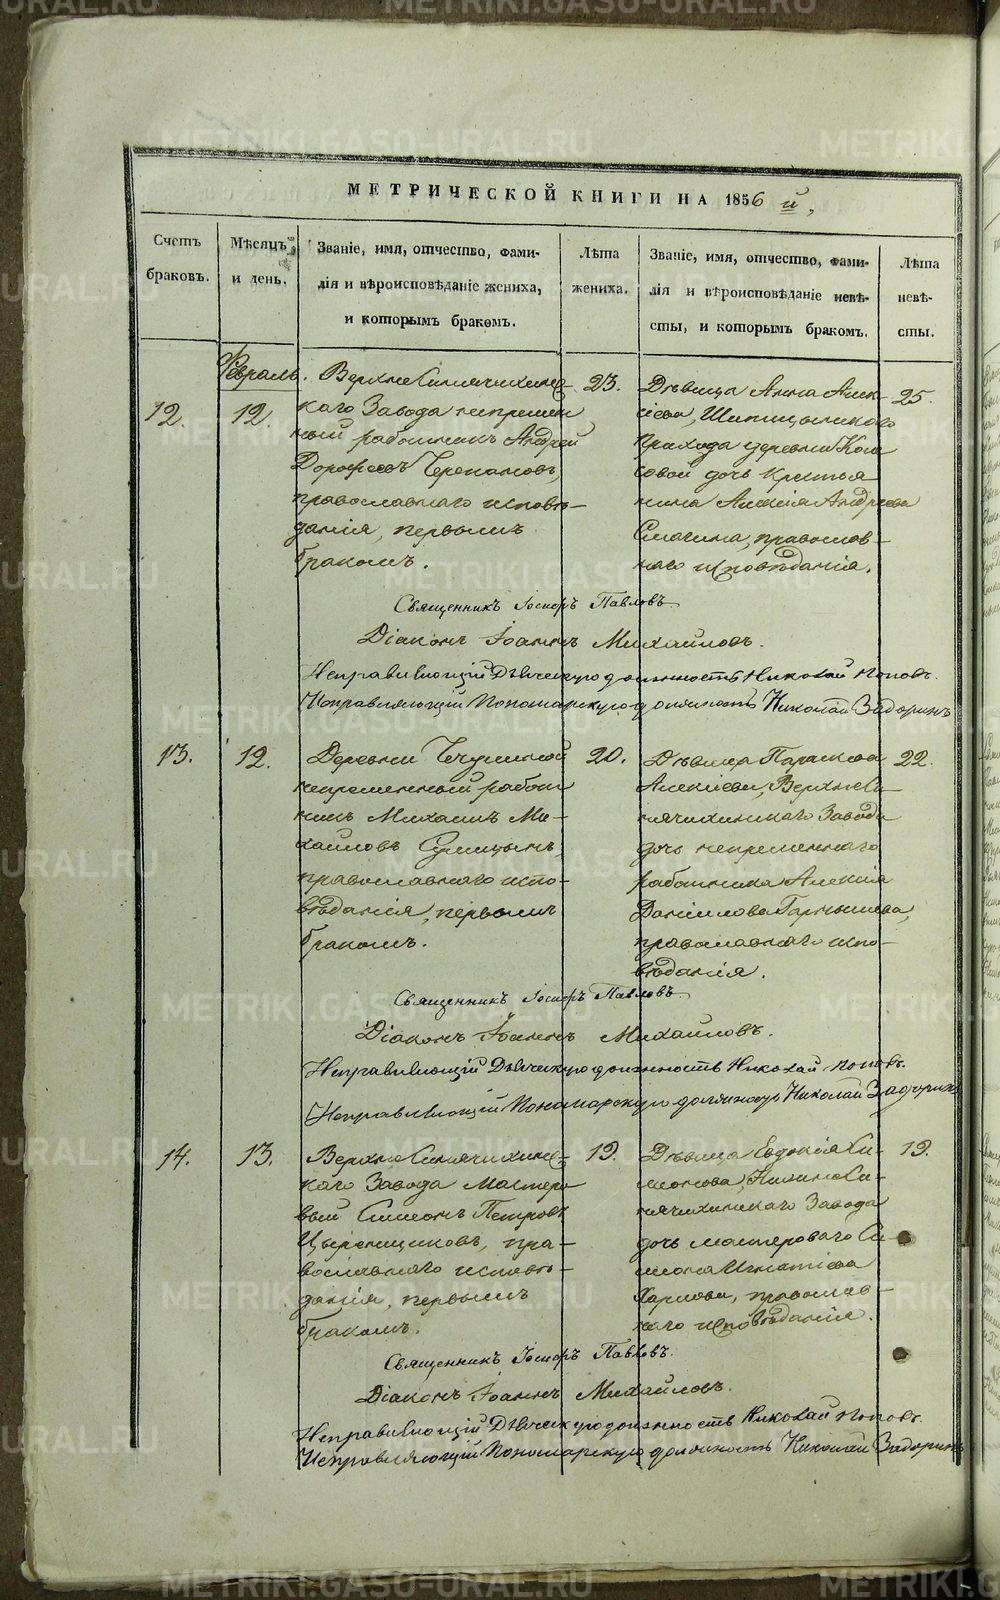 МЕТРИЧЕСКОЙ КНИГИ НА 1856 й,
Счетъ браковъ.
Мѣсяцъ и день.
Званіе, имя, отчество, фами-
лія и вѣроисповѣданіе жениха,
и которымъ бракомъ.
Лѣта жениха.
Званіе, имя, отчество, фами-
лія и вѣроисповѣданіе невѣ-
сты, и которымъ бракомъ.
Лѣта невѣ-
сты.
Февраль.
12.
12.
Верхне Синячихинс-
каго Завода непремен
ный работникъ Андрей
Дорофеевъ Черепановъ,
православнаго исповѣ-
данія, первымъ
бракомъ.
23.
Дѣвица Анна Алек-
сіева,
прихода деревни
совой дочь крестья
нина Алексія Андреева
Смагина, православ-
наго исповѣданія.
25.
Священникъ Іосифъ Павловъ
Діаконъ Іоаннъ Михайловъ.
Исправляющій Дьяческую должность Николай Поповъ.
Исправляющій Пономарскую должность Николай Задоринъ
13.
12.
Деревни
непременный работ
никъ Михаилъ Ми-
хайловъ
православнаго испо-
вѣданія, первымъ
бракомъ.
20.
Дѣвица Параскева
Алексіева, Верхне Си-
нячихинскаго Завода
дочь непременнаго
работника Алексія
Даніилова
православнаго испо-
вѣданія.
22.
Священникъ Іосифъ Павловъ
Діаконъ Іоаннъ Михайловъ.
Исправляющій Дьяческую должность Николай Поповъ.
Исправляющій Пономарскую должность Николай Задоринъ
14.
13.
Верхне Синячихинс-
каго Завода Мастеро
вый Симеонъ Петровъ
пра-
вославнаго исповѣ-
данія, первымъ
бракомъ.
19.
Дѣвица Евдокія Си-
меонова, Нижне Си-
нячихинскаго Завода
дочь мастероваго Си-
меона Игнатіева
Харлова, православ-
наго исповѣданія.
19.
Священникъ Іосифъ Павловъ.
Діаконъ Іоаннъ Михайловъ.
Исправляющій Дьяческую должность Николай Поповъ.
Исправляющій Пономарскую должность Николай Задоринъ
METRIKI.GASO-URAL.RU